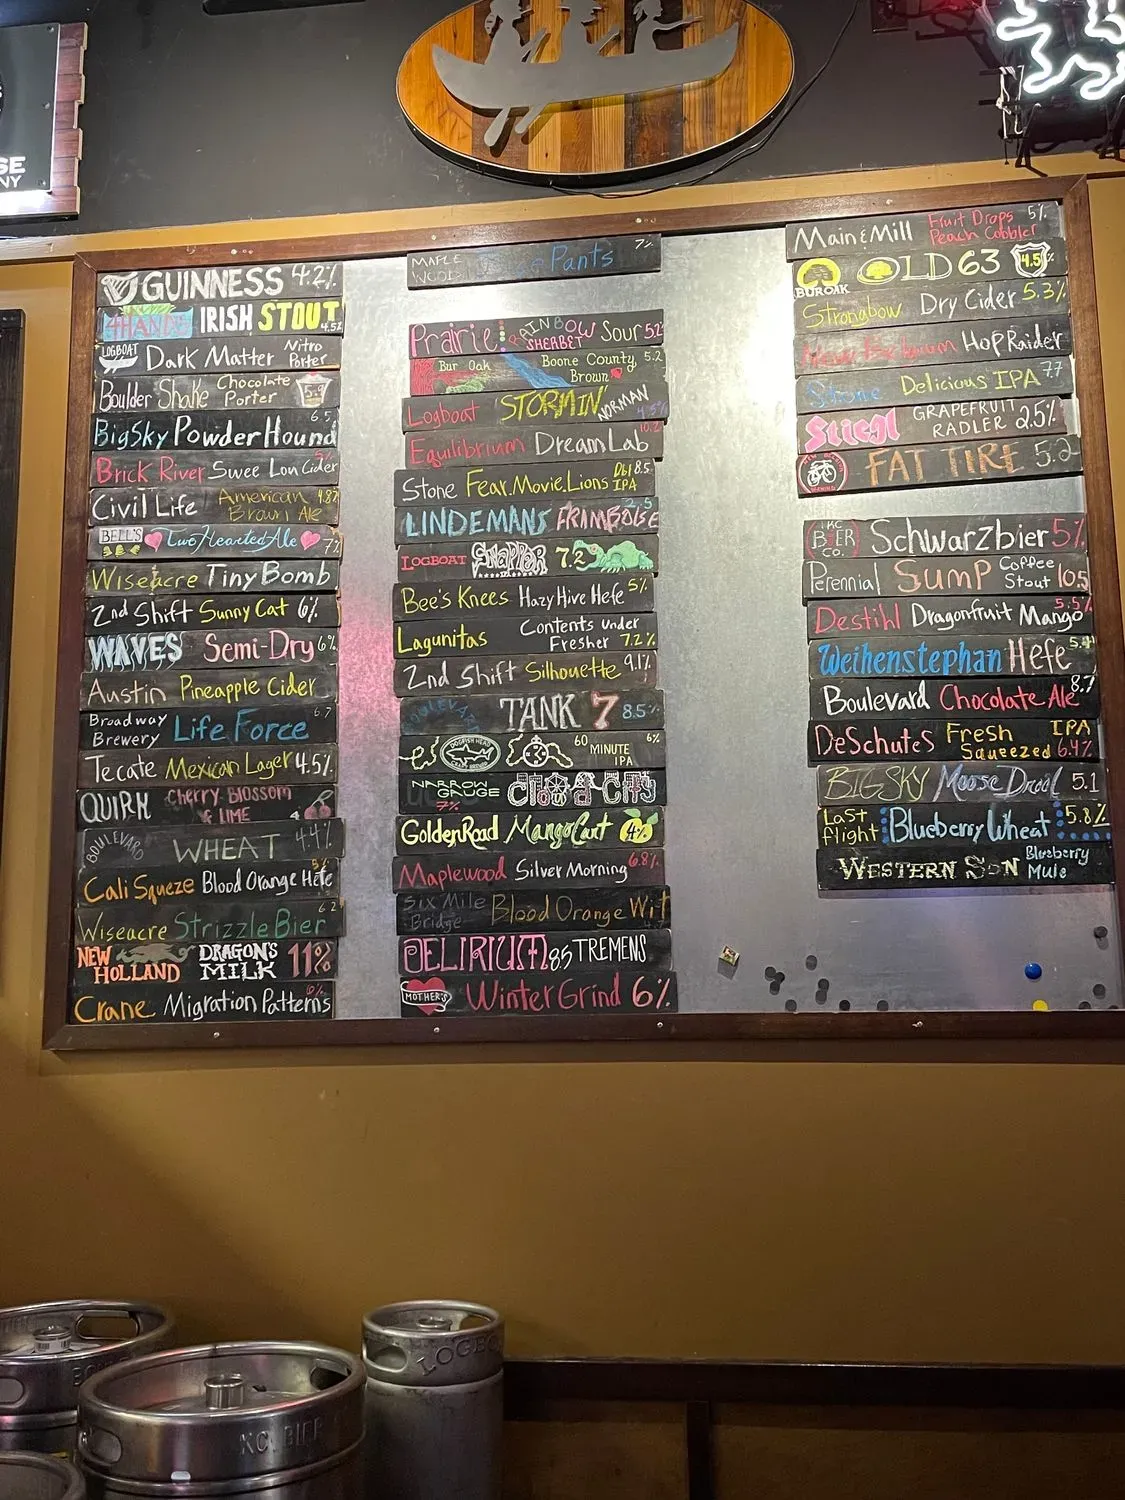 SE
NY
GUINNESS 4.2%
4HANDS IRISH STOUT 4.5%
LOGBOAT Dark Matter Nitro Porter
Boulder Shake Chocolate Porter 5.9
BigSky PowderHound 6.5
Brick River Swee Lou Cider 5%
Civil Life American Brown Ale 4.8%
BELL'S Two Hearted Ale 7%
Wiseacre Tiny Bomb
2nd Shift Sunny Cat 6%
WAVES Semi-Dry 6%
Austin Pineapple Cider
Broadway Brewery Life Force 6.7
Tecate Mexican Lager 4.5%
QUIRK Cherry Blossom & LIME
BOULEVARD WHEAT 4.4%
Cali Squeze Blood Orange Hefe 5%
Wiseacre Strizzle Bier 6.2
NEW HOLLAND DRAGON'S MILK 11%
Crane Migration Patterns 6%
MAPLE WOOD Pants 7%
Prairie RAINBOW SHERBET Sour 5.2
Bur Oak Boone County Brown 5.2
Logboat STORMIN' NORMAN 4.5%
Equilibrium DreamLab 10.2
Stone Fear.Movie.Lions Dbl IPA 8.5
LINDEMANS FRAMBOISE 2.5
LOGBOAT SNAPPER 7.2
Bee's Knees Hazy Hive Hefe 5%
Lagunitas Contents under Fresher 7.2%
2nd Shift Silhouette 9.1%
BOULEVARD TANK 7 8.5%
DOGFISH HEAD 60 MINUTE IPA 6%
NARROW GAUGE 7% Cloud City
GoldenRoad MangoCart 4%
Maplewood Silver Morning 6.8%
Six Mile Bridge Blood Orange Wit
DELIRIUM 8.5 TREMENS
MOTHER'S Winter Grind 6%
Main & Mill Fruit Drops Peach Cobbler 5%
BUR OAK OLD 63 4.5%
Strongbow Dry Cider 5.3%
Hop Raider
Stone Delicious IPA 7.7
Stiegl GRAPEFRUIT RADLER 2.5%
FAT TIRE 5.2
KC BIER CO. Schwarzbier 5%
Perennial Sump Coffee Stout 10.5
Destihl Dragonfruit Mango 5.5%
Weihenstephan Hefe 5.4
Boulevard Chocolate Ale 8.7
DeSchutes Fresh Squeezed IPA 6.4%
BIG SKY Moose Drool 5.1
Last flight Blueberry Wheat 5.8%
WESTERN SON Blueberry Mule
LOGBO
KC BIER